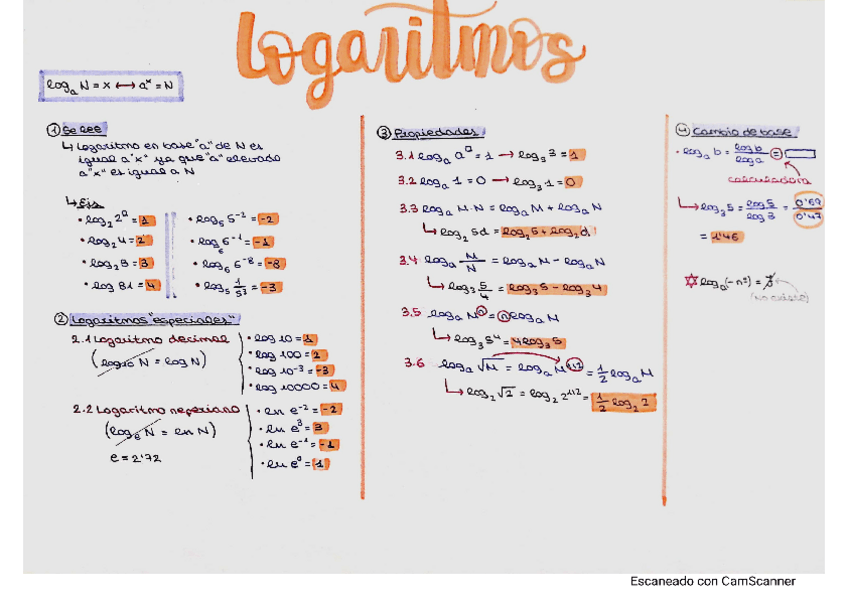 Logaritmos
logₐ N = x ⟷ aˣ = N
① Se lee
↳ Logaritmo en base "a" de N es
igual a "x" ya que "a" elevado
a "x" es igual a N
↳ Ejs
• log₂ 2 = 1
• log₂ 4 = 2
• log₂ 8 = 3
• log 81 = 4
• log₅ 5⁻² = -2
• log₆ 6⁻¹ = -1
• log₆ 6⁻⁸ = -8
• log₅ 1/5³ = -3
② Logaritmos "especiales"
2.1 Logaritmo decimal
(log₁₀ N = log N)
• log 10 = 1
• log 100 = 2
• log 10⁻³ = -3
• log 10000 = 4
2.2 Logaritmo neperiano
(logₑ N = ln N)
e = 2'72
• ln e⁻² = -2
• ln e³ = 3
• ln e⁻¹ = -1
• ln e = 1
③ Propiedades
3.1 logₐ a = 1 → log₃ 3 = 1
3.2 logₐ 1 = 0 → log₃ 1 = 0
3.3 logₐ M·N = logₐ M + logₐ N
↳ log₂ 5d = log₂ 5 + log₂ d
3.4 logₐ M/N = logₐ M - logₐ N
↳ log₃ 5/4 = log₃ 5 - log₃ 4
3.5 logₐ Nⁿ = n logₐ N
↳ log₃ 5⁴ = 4 log₃ 5
3.6 logₐ √M = logₐ M^1/2 = 1/2 logₐ M
↳ log₂ √2 = log₂ 2^1/2 = 1/2 log₂ 2
④ Cambio de base
• logₐ b = log b / log a =
calculadora
↳ log₃ 5 = log 5 / log 3 = 0'69 / 0'47
= 1'46
logₐ (-nº) = ∄
(no existe)
Escaneado con CamScanner